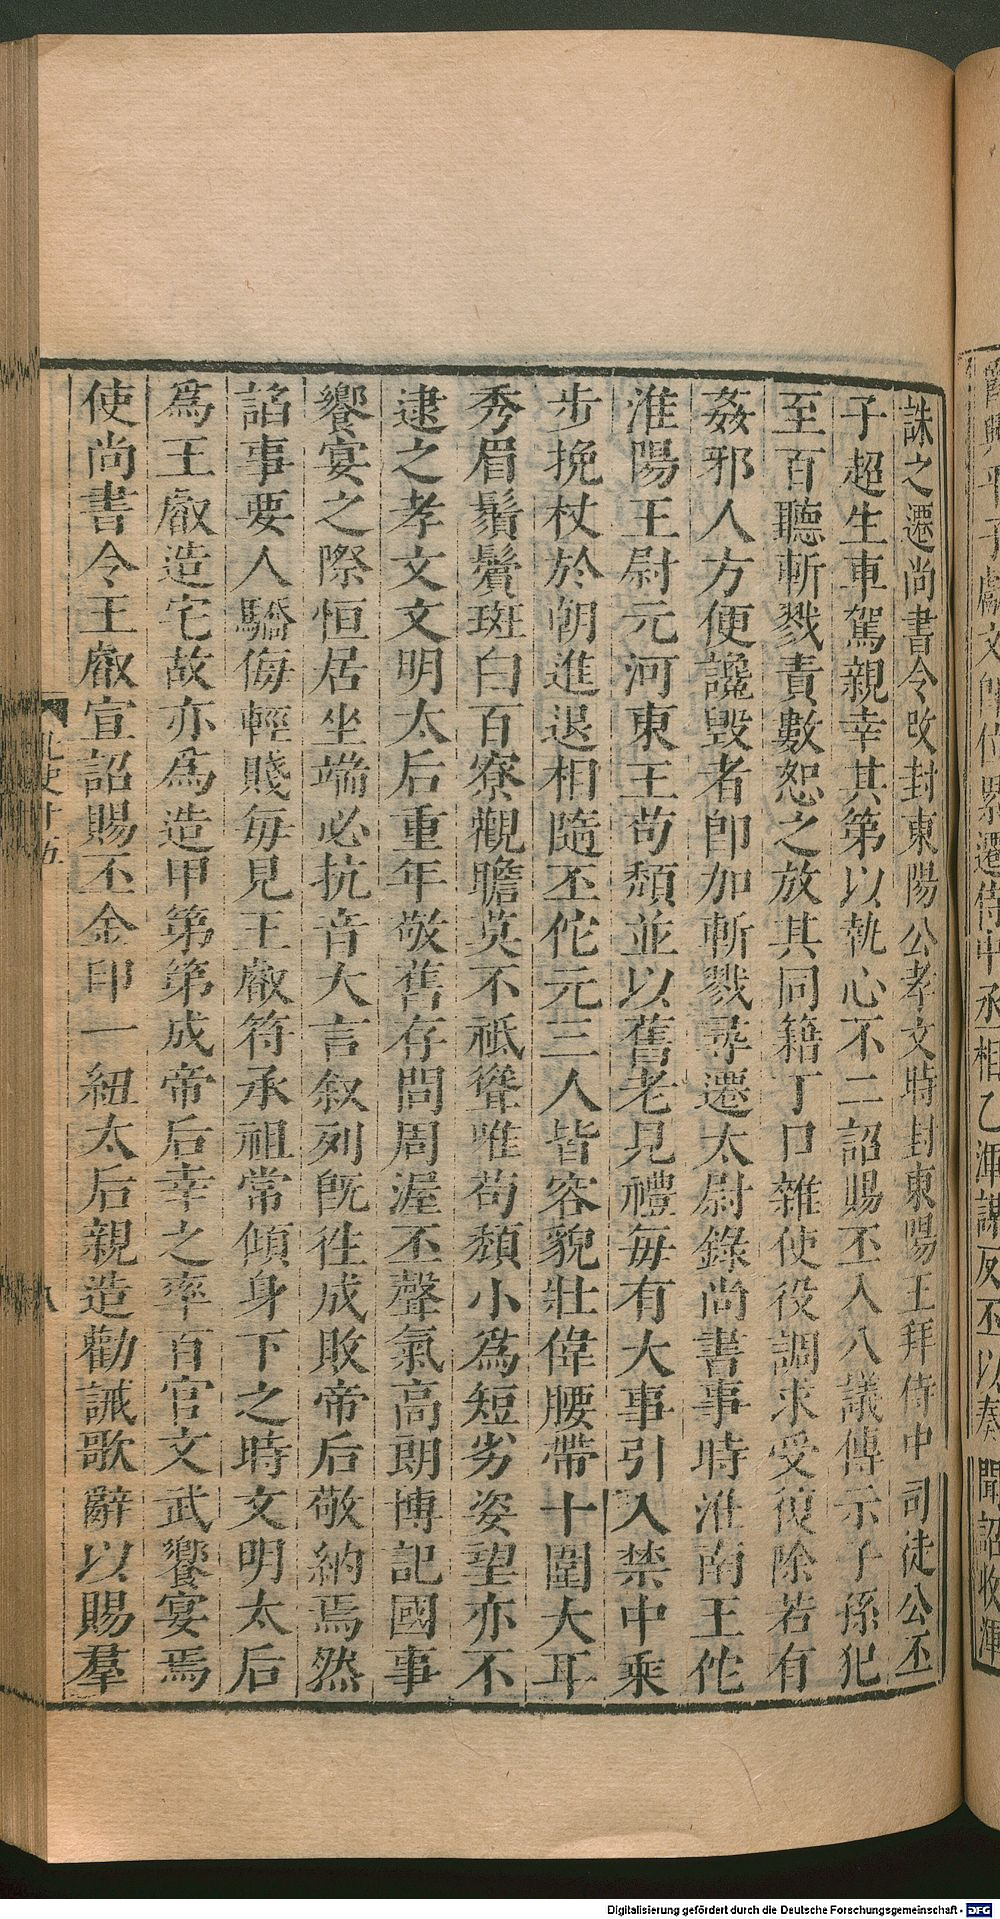 誅之遷尚書令改封東陽公孝文時封東陽王拜侍中司徒公丕
子超生車駕親幸其第以執心不二詔賜丕入八議傳示子孫犯
至百聽斬戮責數恕之放其同籍丁口雜使役調求受復除若有
姦邪人方便讒毀者卽加斬戮尋遷太尉錄尚書事時淮南王佗
淮陽王尉元河東王苟頹並以舊老見禮每有大事引入禁中乘
步挽杖於朝進退相隨丕佗元三人皆容貌壯偉腰帶十圍大耳
秀眉鬚鬢斑白百寮觀瞻莫不祗聳唯苟頹小爲短劣姿望亦不
逮之孝文文明太后重年敬舊存問周渥丕聲氣高朗博記國事
饗宴之際恒居坐端必抗音大言叙列旣徃成敗帝后敬納焉然
謟事要人驕侮輕賤每見王叡符承祖常傾身下之時文明太后
爲王叡造宅故亦爲造甲第第成帝后幸之率百官文武饗宴焉
使尚書令王叡宣詔賜丕金印一紐太后親造勸誡歌辭以賜羣
八
Digitalisierung gefördert durch die Deutsche Forschungsgemeinschaft - DFG